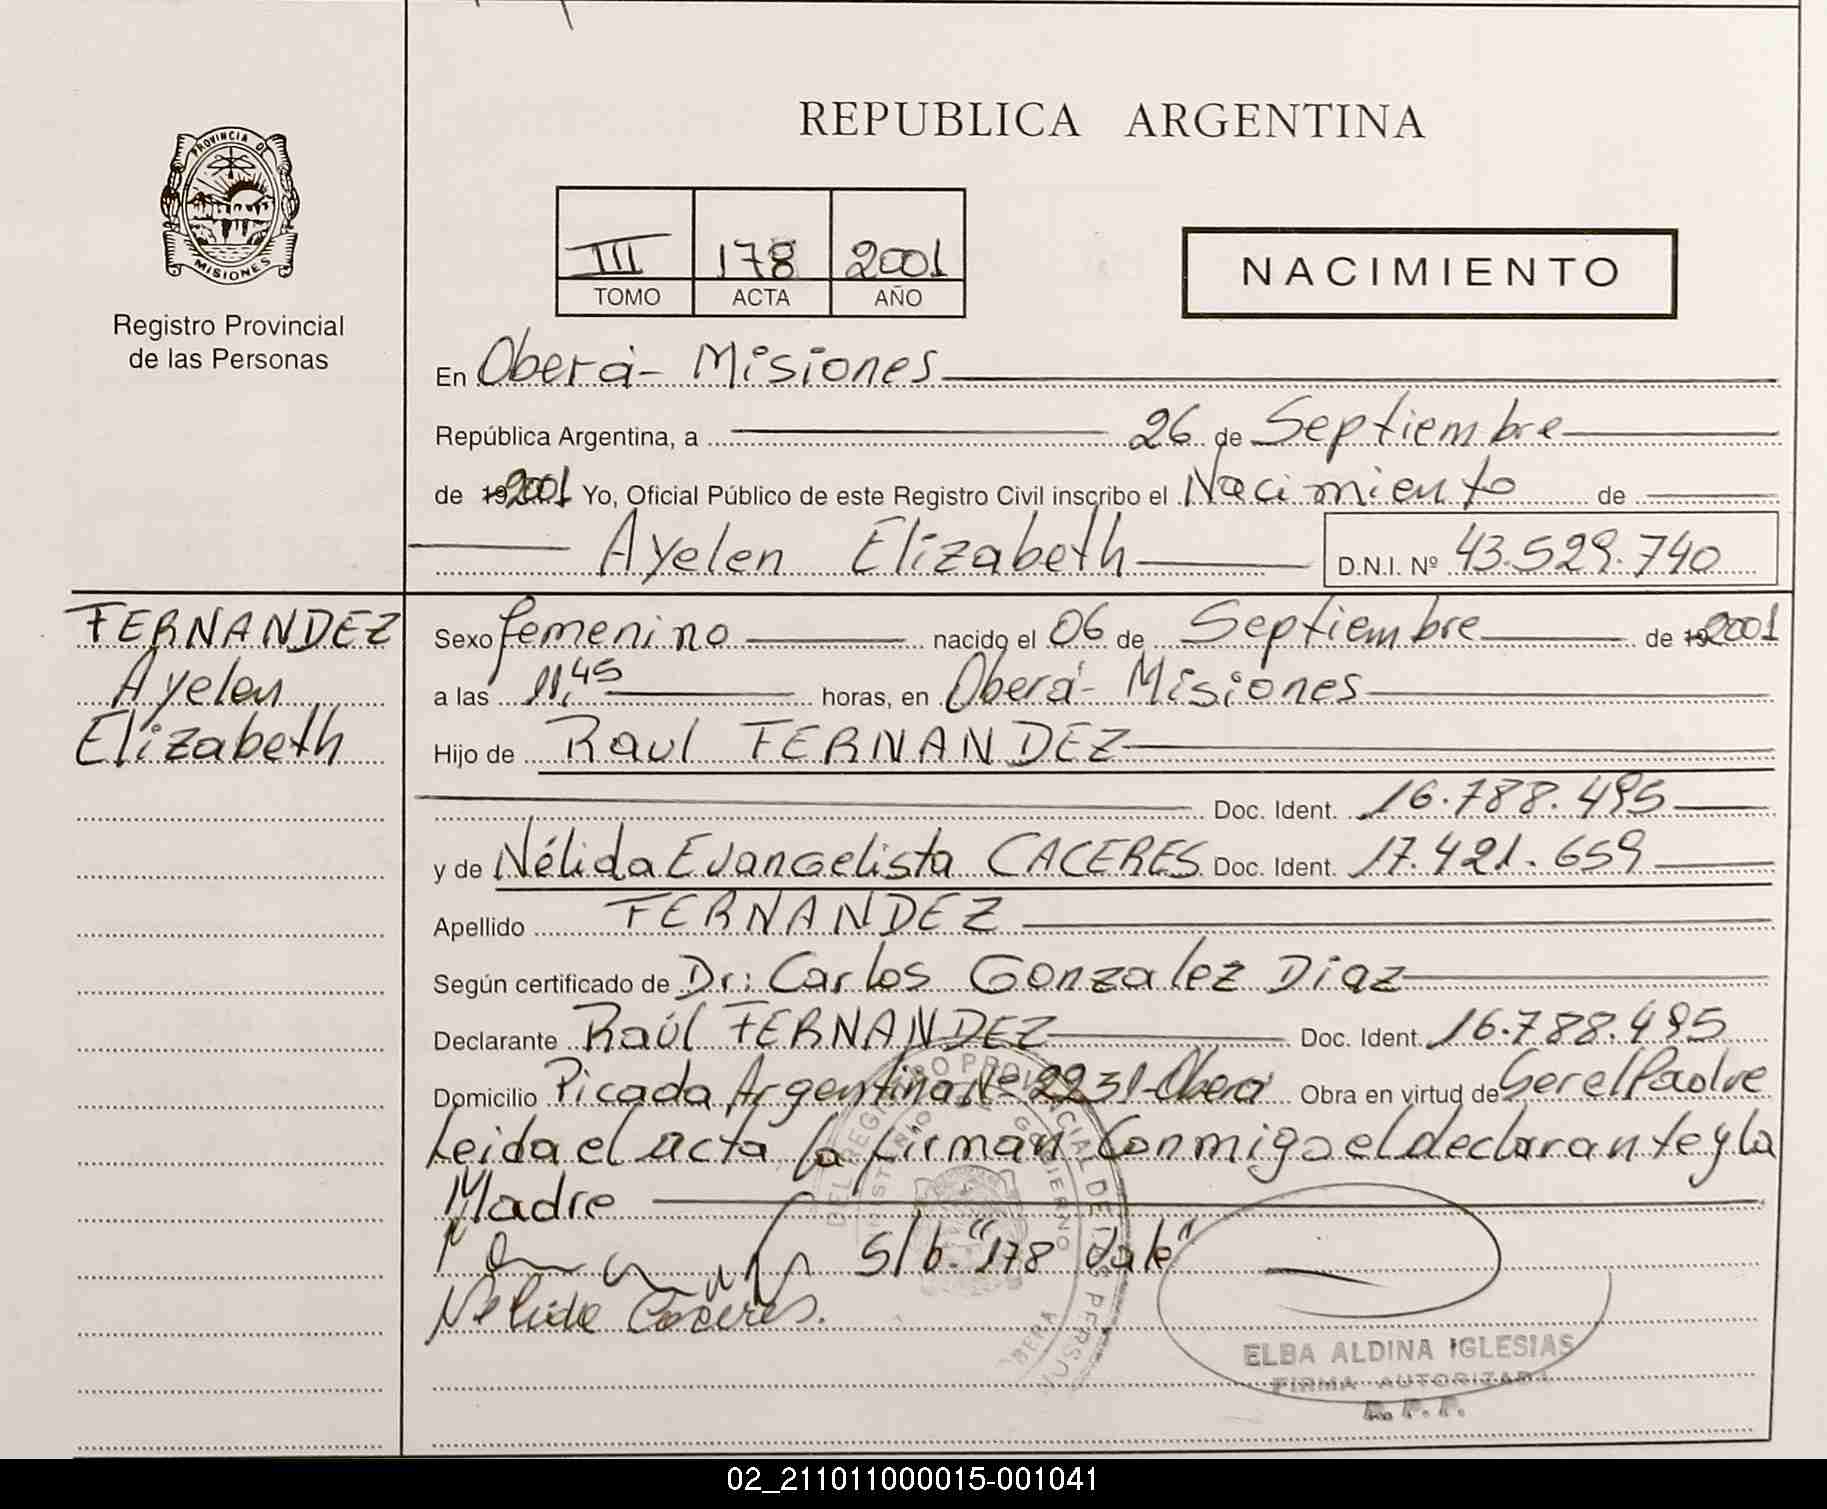 REPUBLICA ARGENTINA
PROVINCIA DE
MISIONES
Registro Provincial
de las Personas
III 178 2001
TOMO ACTA AÑO
NACIMIENTO
En Oberá - Misiones
República Argentina, a 26 de Septiembre
de 19 2001 Yo, Oficial Público de este Registro Civil inscribo el Nacimiento de
Ayelen Elizabeth D.N.I. Nº 43.529.740
FERNANDEZ
Ayelen
Elizabeth
Sexo femenino nacido el 06 de Septiembre de 19 2001
a las 11,45 horas, en Oberá - Misiones
Hijo de Raul FERNANDEZ
Doc. Ident. 16.788.495
y de Nélida Evangelista CACERES Doc. Ident. 17.421.659
Apellido FERNANDEZ
Según certificado de Dr: Carlos Gonzalez Diaz
Declarante Raúl FERNANDEZ Doc. Ident. 16.788.495
Domicilio Picada Argentina Nº 2231 - Oberá Obra en virtud de Ser el Padre
Leida el acta la firman Conmigo el declarante y la
Madre
S/b. "178 Vale"
Nelida Caceres.
ELBA ALDINA IGLESIAS
FIRMA AUTORIZADA
R. P. P.
02_211011000015-001041